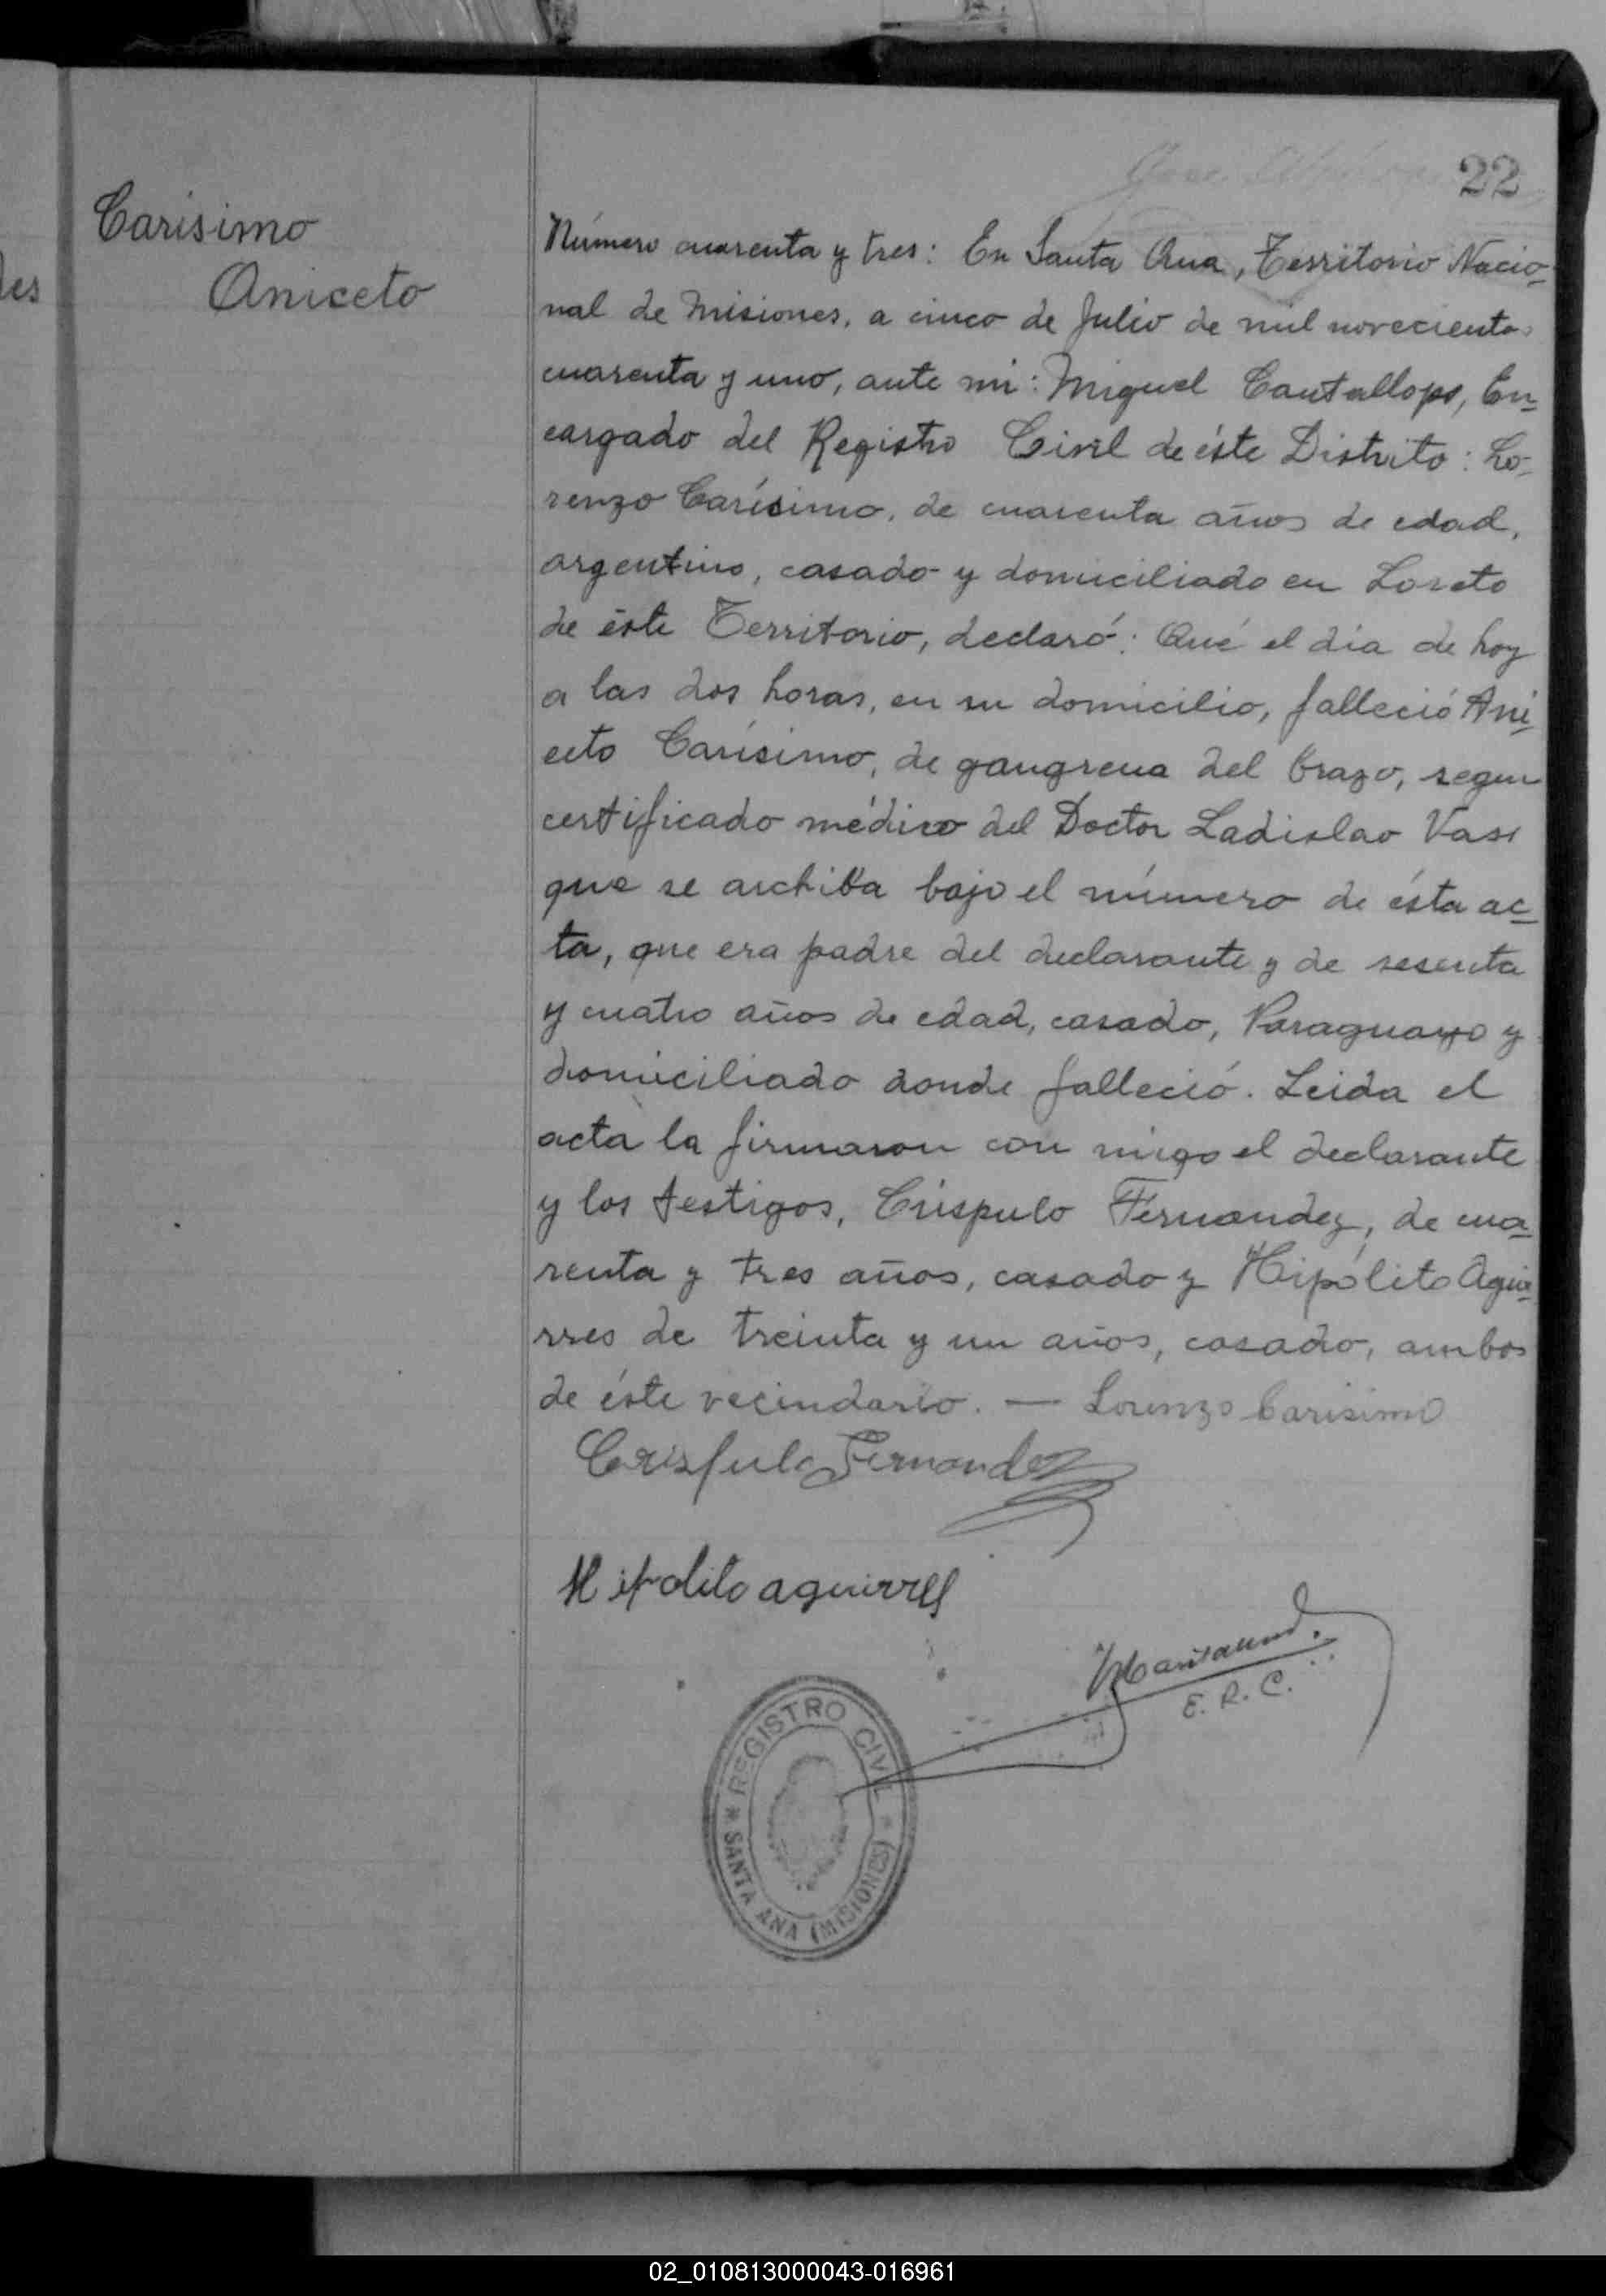 22
Carísimo
Aniceto
Número cuarenta y tres: En Santa Ana, Territorio Nacio-
nal de Misiones, a cinco de Julio de mil novecientos
cuarenta y uno, ante mi: Miguel Cantallops, En-
cargado del Registro Civil de éste Distrito: Lo-
renzo Carísimo, de cuarenta años de edad,
argentino, casado y domiciliado en Loreto
de éste Territorio, declaró: Qué el día de hoy
a las dos horas, en su domicilio, falleció Ani-
ceto Carísimo, de gangrena del brazo, segun
certificado médico del Doctor Ladislao
que se archiva bajo el número de ésta ac-
ta, que era padre del declarante y de sesenta
y cuatro años de edad, casado, Paraguayo y
domiciliado donde falleció. Leida el
acta la firmaron con migo el declarante
y los testigos, Críspulo Fernandez, de cua-
renta y tres años, casado y Hipólito Agui-
rres de treinta y un años, casado, ambos
de éste vecindario. — Lorenzo Carisimo
Crispulo Fernandez
Hipolito aguirres
E. R. C.
REGISTRO CIVIL
* SANTA ANA (MISIONES) *
02_010813000043-016961